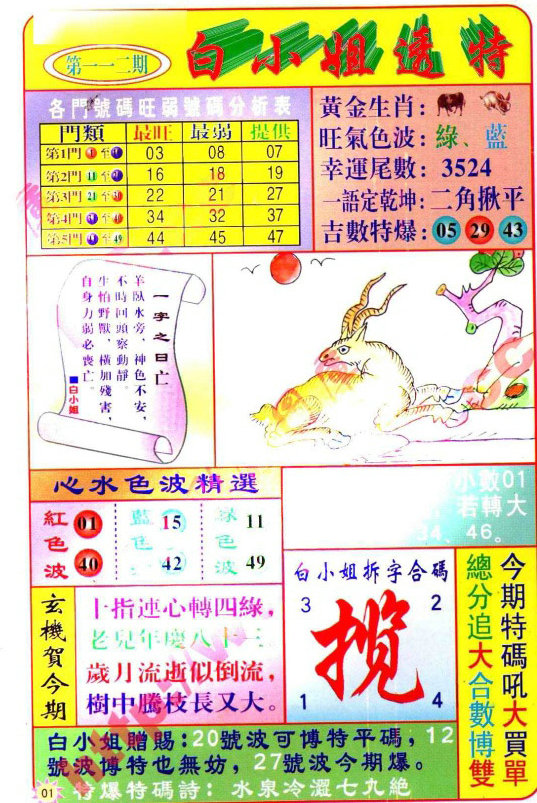 第一一二期
白小姐透特
各門號碼旺弱號碼分析表
門類 最旺 最弱 提供
第1門 至 03 08 07
第2門 11 至 16 18 19
第3門 21 至 22 21 27
第4門 至 34 32 37
第5門 至 49 44 45 47
黃金生肖:
旺氣色波:綠、藍
幸運尾數: 3524
一語定乾坤:二角揪平
吉數特爆:05 29 43
一字之曰亡
羊臥水旁,神色不安,
不時回頭察動靜。
生怕野獸,橫加殘害,
自身力弱必喪亡。
■白小姐
心水色波精選
紅色波 01 40
藍色 15 42
綠色波 11 49
小數01
若轉大
34、46。
玄機賀今期
十指連心轉四綠,
老兒年慶八十三
歲月流逝似倒流,
樹中騰枝長又大。
白小姐拆字合碼
3 2
揽
1 4
今期特碼吼大買單
總分追大合數博雙
白小姐贈賜:20號波可博特平碼,12
號波博特也無妨,27號波今期爆。
特爆特碼詩: 水泉冷澀七九絕
01